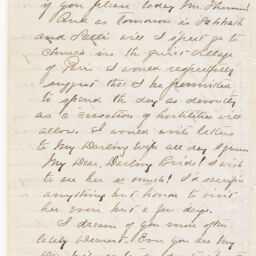 if you please today Mr Sherman!
And as tomorrow is Sabbath
and Salli will I spect go to
church in the quiet village
of Paris I would respectfully
suggest that I be permitted
to spend the day as devoutly
as a cessation of hostilities will
allow. I would write letters
to My Darling Wife all day I guess
My Dear, Darling Bride! I wish
to see her so much! I'd sacrifice
anything but honor to visit
her even but a few days.
I dream of you more often
lately Dearest. Even you are My